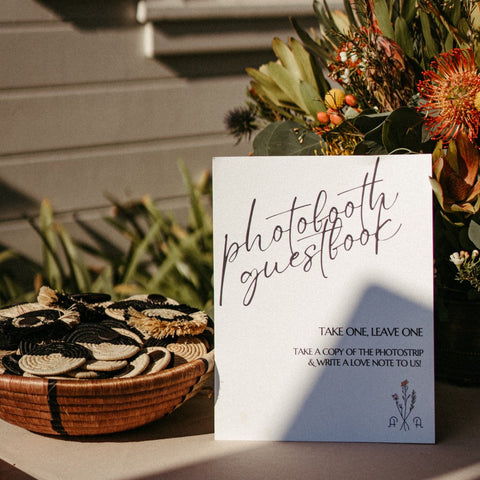 photobooth
guestbook
TAKE ONE, LEAVE ONE
TAKE A COPY OF THE PHOTOSTRIP
& WRITE A LOVE NOTE TO US!
A R